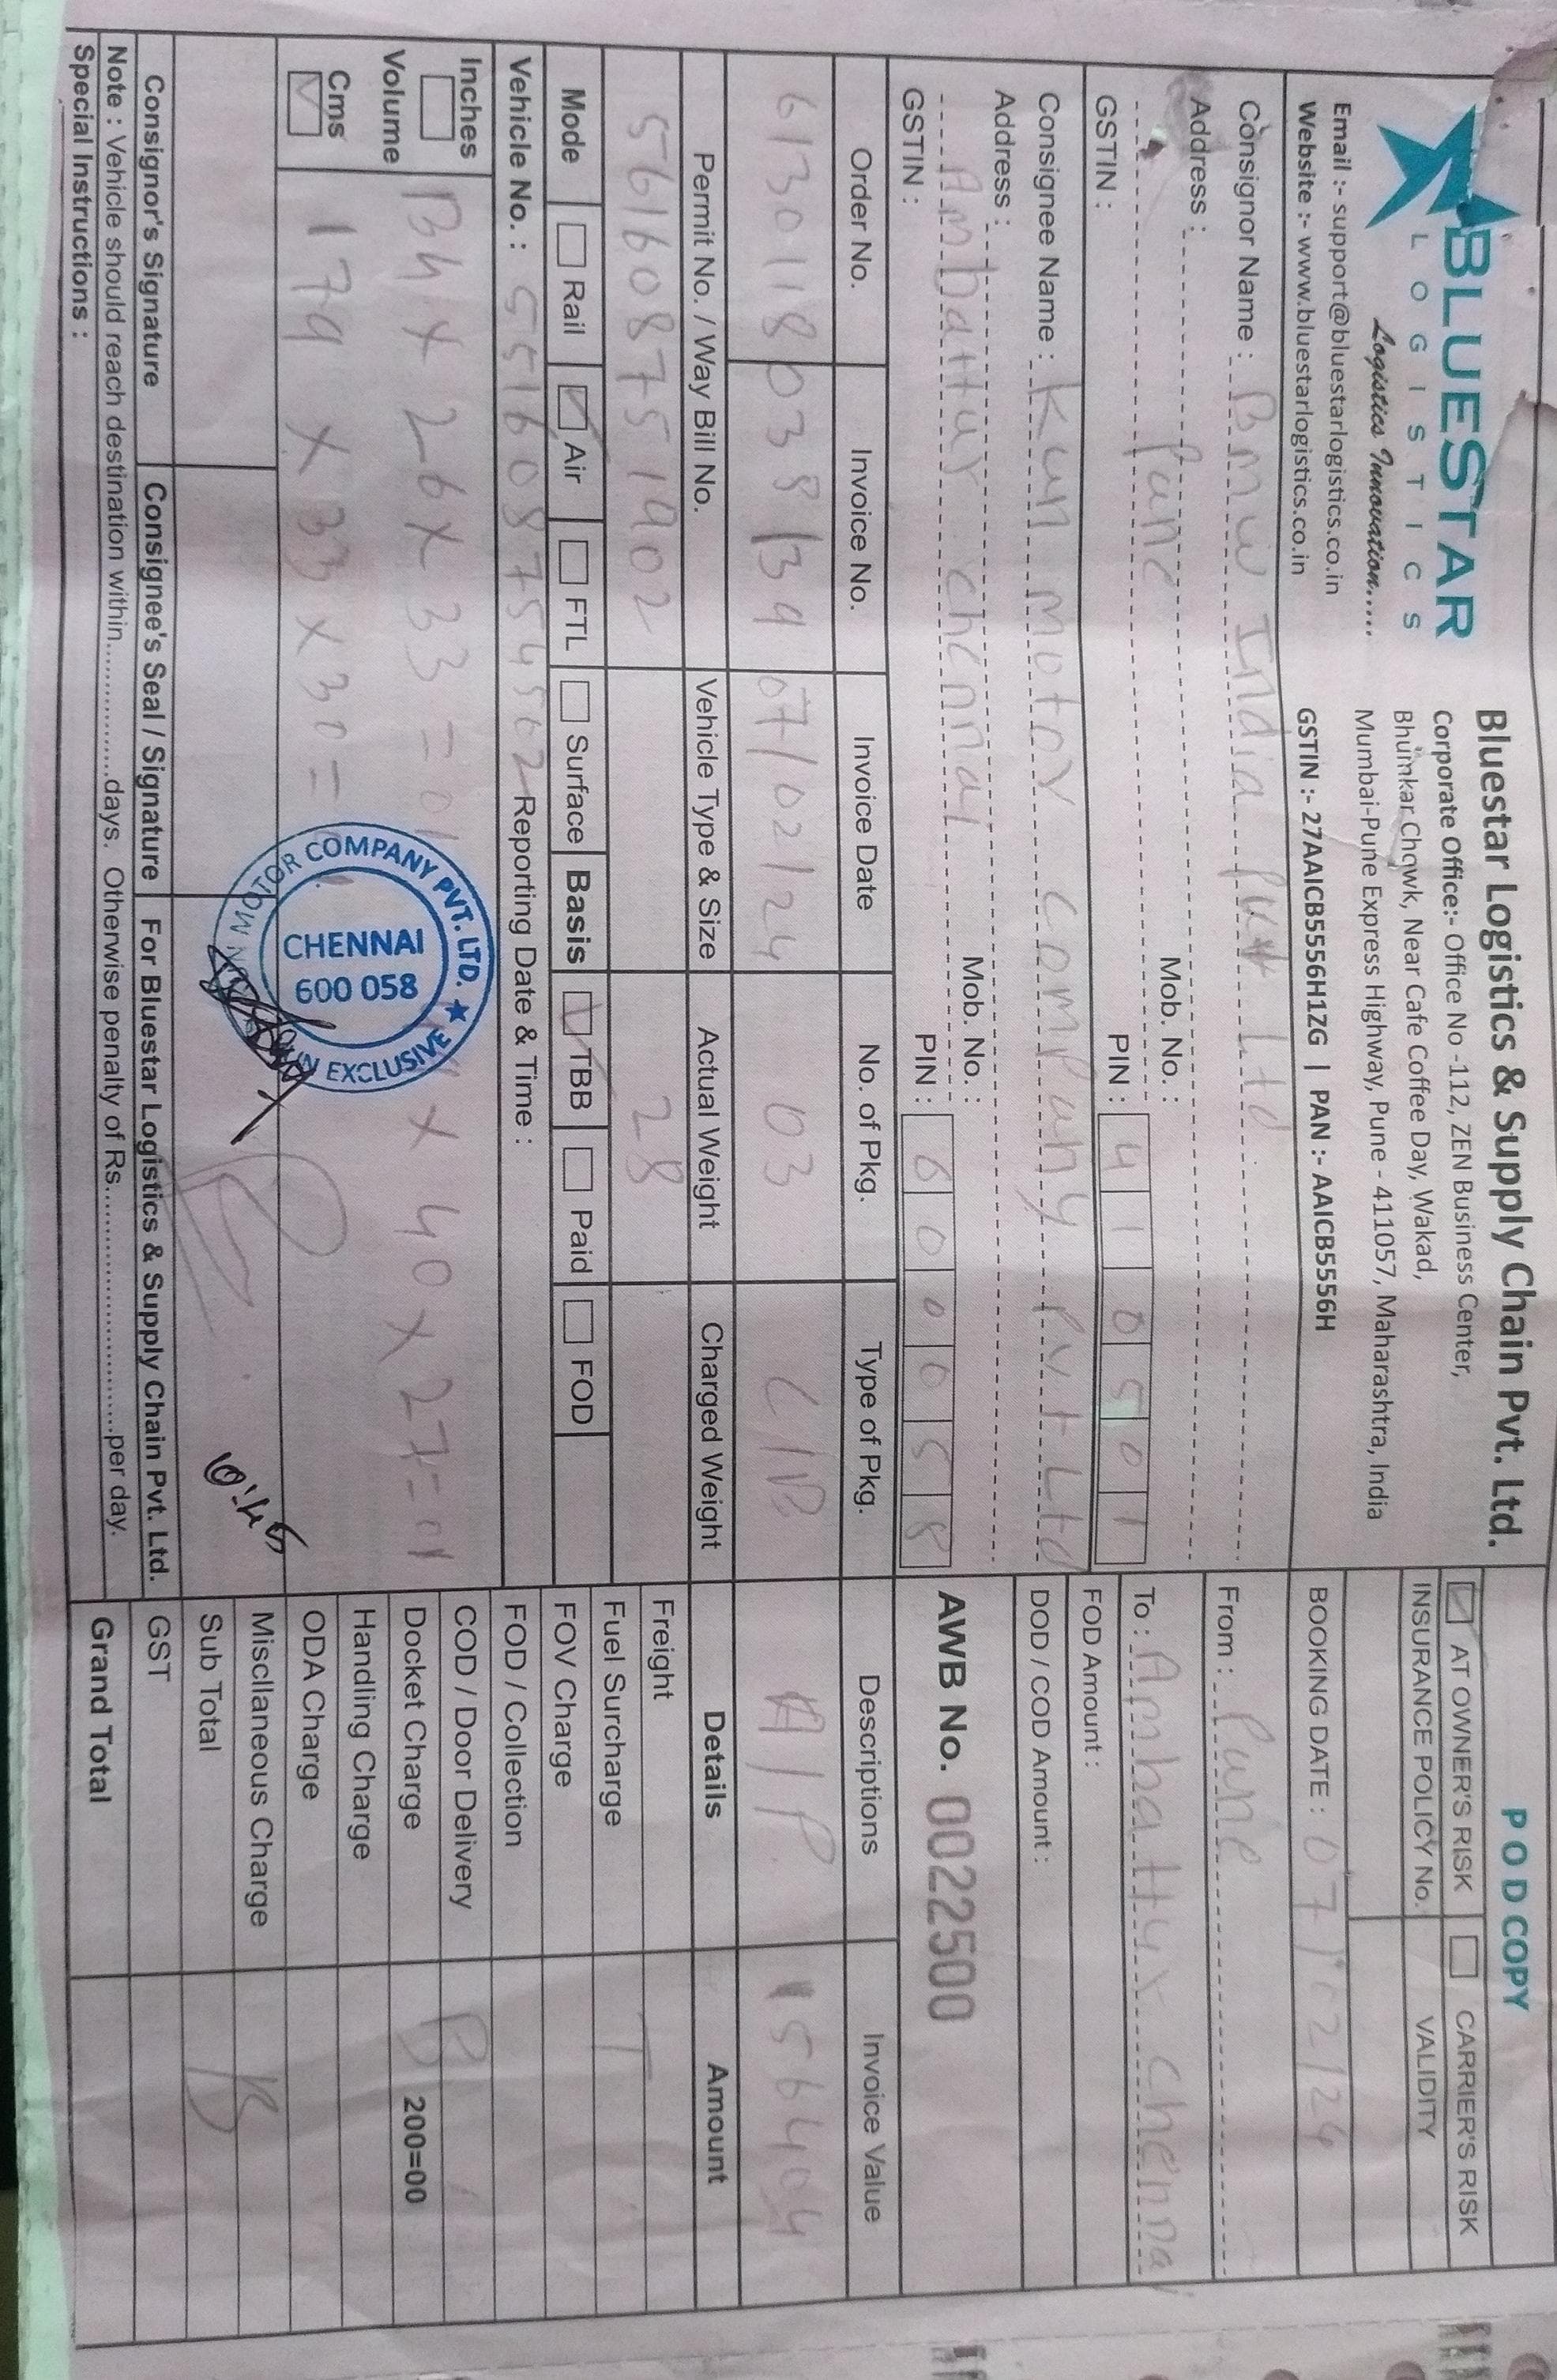 BLUESTAR
LOGISTICS
Logistics Innovation.....
Email :- support@bluestarlogistics.co.in
Website :- www.bluestarlogistics.co.in
Bluestar Logistics & Supply Chain Pvt. Ltd.
Corporate Office:- Office No -112, ZEN Business Center,
Bhumkar Chowk, Near Cafe Coffee Day, Wakad,
Mumbai-Pune Express Highway, Pune - 411057, Maharashtra, India
GSTIN :- 27AAICB5556H1ZG | PAN :- AAICB5556H
POD COPY
AT OWNER'S RISK CARRIER'S RISK
INSURANCE POLICY No. VALIDITY
BOOKING DATE : 07/02/24
Consignor Name : BMW India Pvt Ltd
Address :
Pune
Mob. No. :
PIN : 410501
GSTIN :
From : Pune
To : Ambattur Chennai
FOD Amount :
DOD / COD Amount :
Consignee Name : Kun motor company pvt Ltd
Address :
Ambattur chennai
Mob. No. :
PIN : 600058
GSTIN :
AWB No. 0022500
Order No. Invoice No. Invoice Date No. of Pkg. Type of Pkg. Descriptions Invoice Value
6130118038/39 07/02/24 03 C/B A/P 156404
Permit No. / Way Bill No. Vehicle Type & Size Actual Weight Charged Weight Details Amount
561608751902 28
Mode Rail Air FTL Surface Basis TBB Paid FOD
Vehicle No. : 551608754502 Reporting Date & Time :
Inches
Volume
Cms
134 x 26 x 33 = 01 x 40 x 27 = 01
179 x 33 x 30 =
KUN MOTOR COMPANY PVT. LTD. ★ KUN EXCLUSIVE
CHENNAI
600 058
Freight
Fuel Surcharge T
FOV Charge
FOD / Collection
COD / Door Delivery B
Docket Charge 200=00
Handling Charge
ODA Charge
Miscllaneous Charge B
Sub Total
GST
Grand Total
10:45
Consignor's Signature Consignee's Seal / Signature For Bluestar Logistics & Supply Chain Pvt. Ltd.
Note : Vehicle should reach destination within.................days. Otherwise penalty of Rs..............................per day.
Special Instructions :